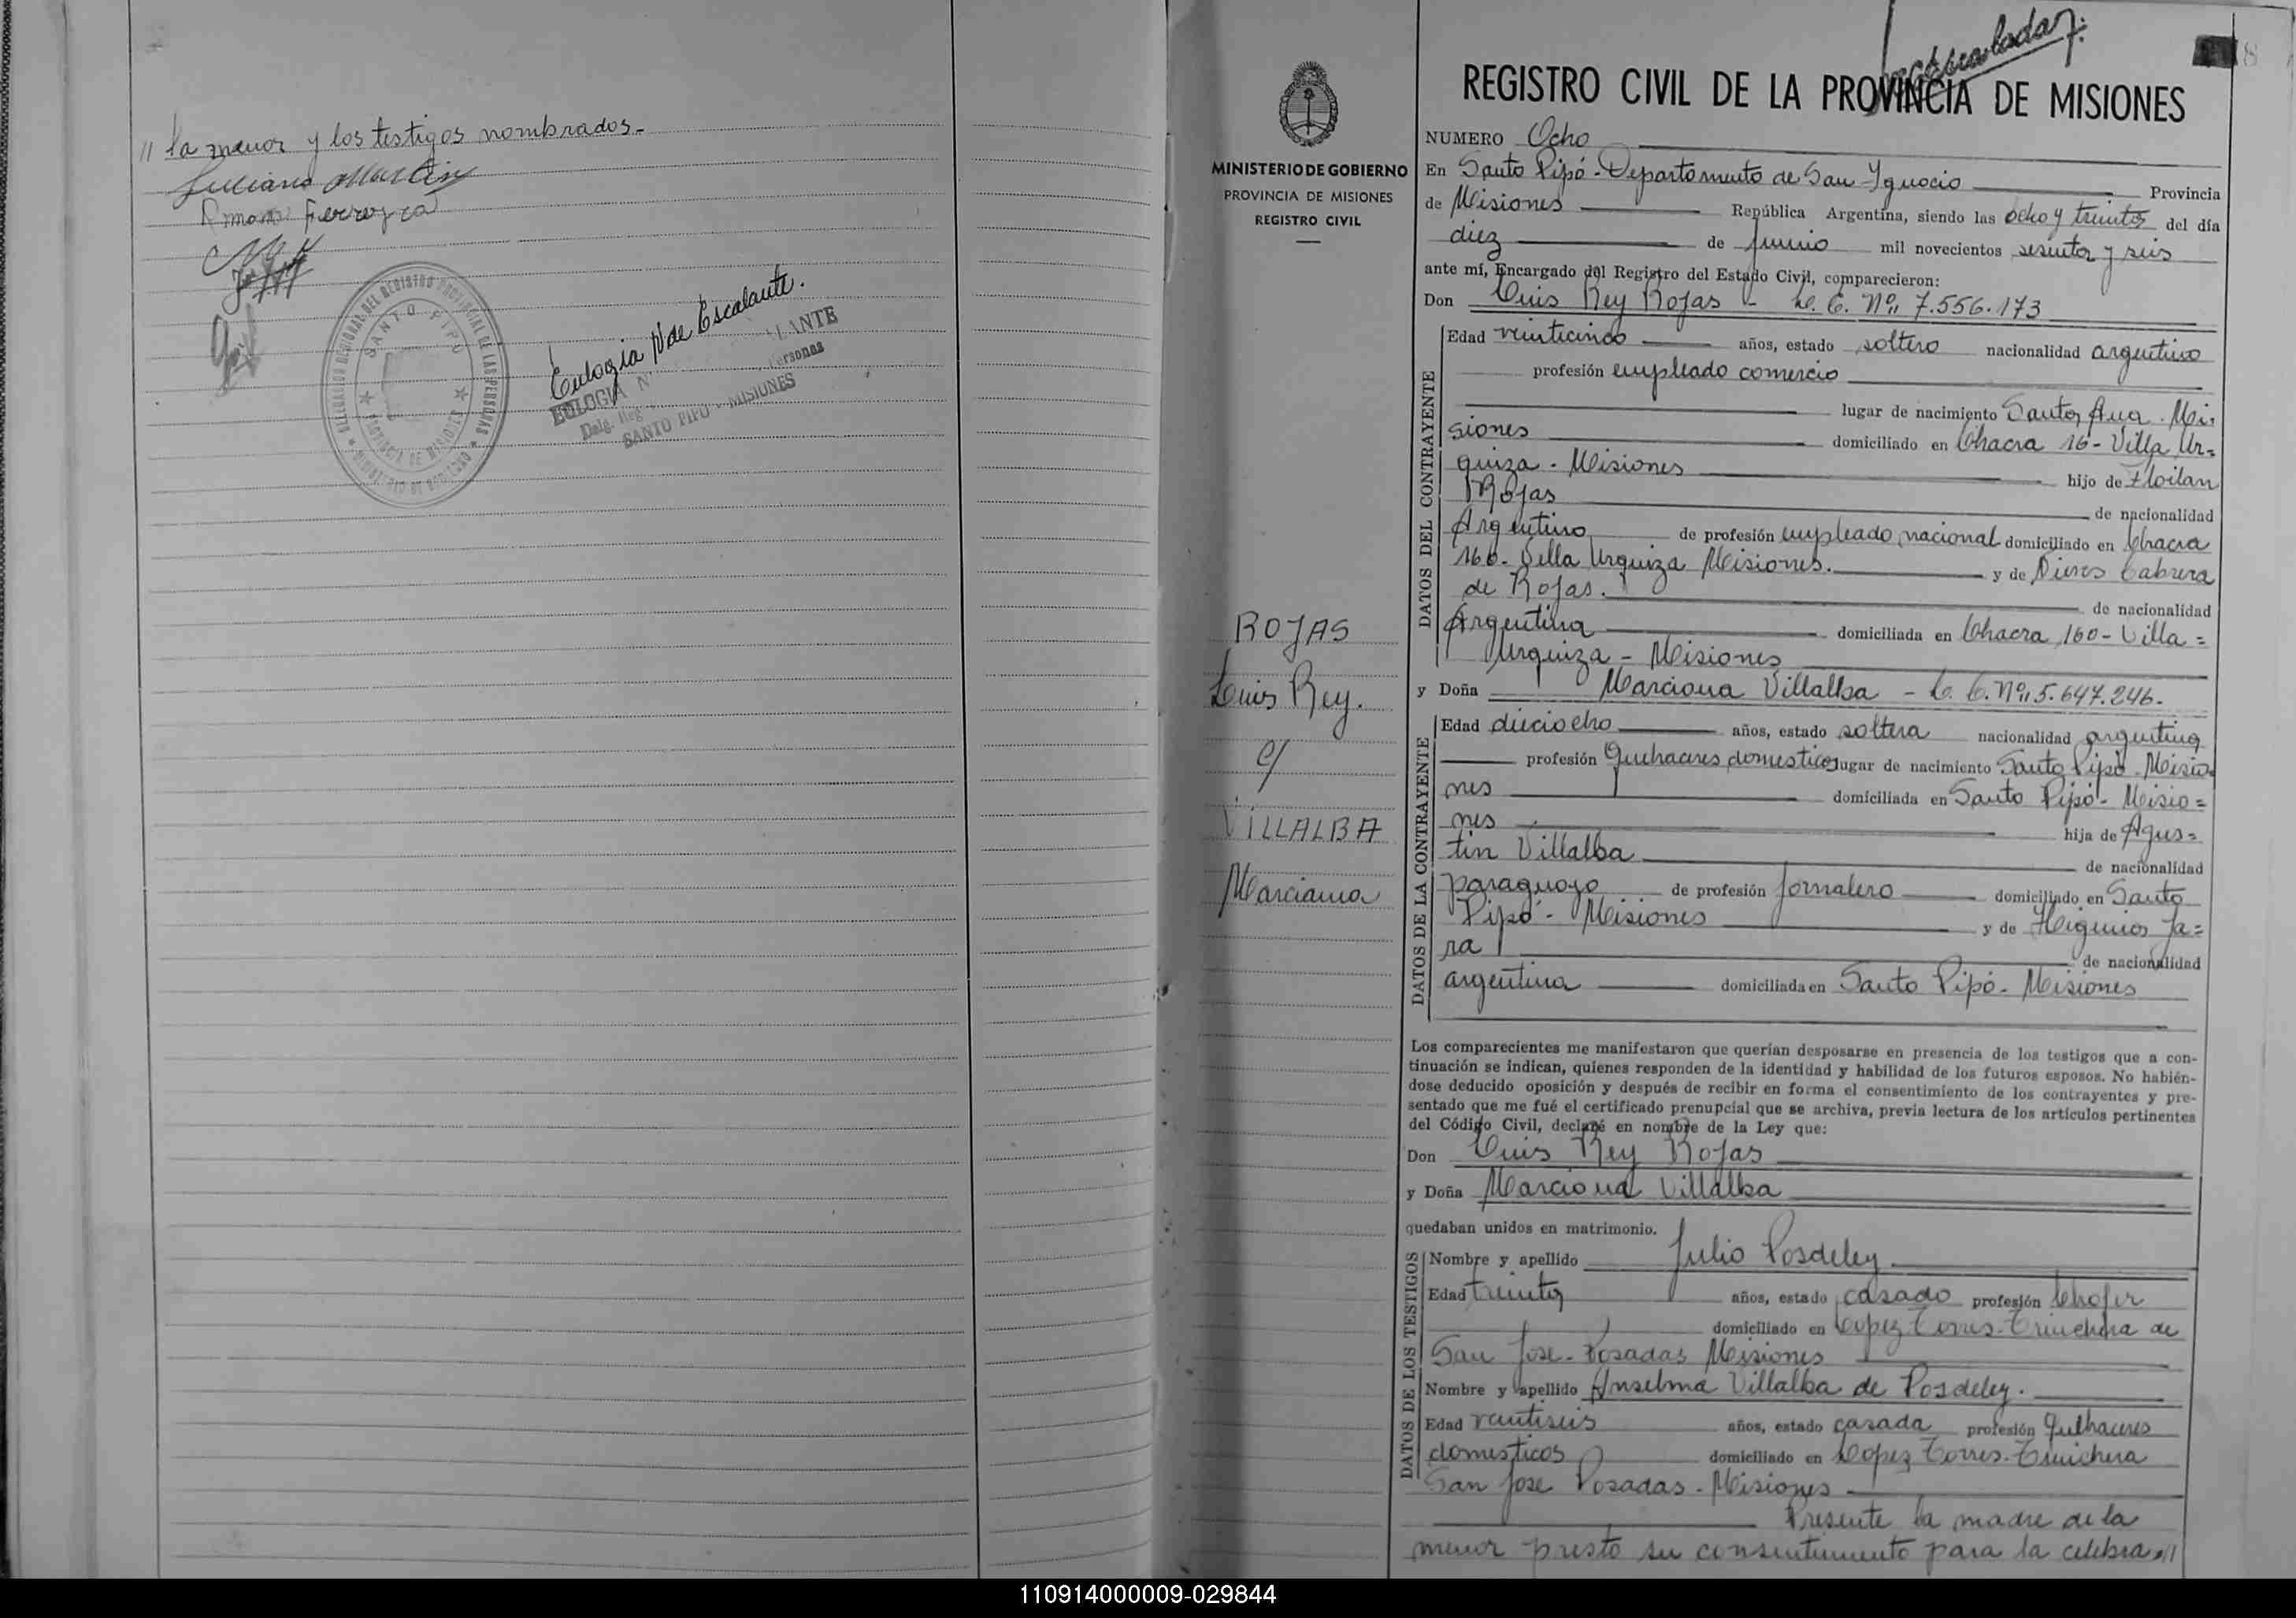 // la menor y los testigos nombrados.-
Luciano Martin
Ferreyra
DELEGADO REGIONAL DEL REGISTRO PROVINCIAL DE LAS PERSONAS
SANTO PIPO
PROVINCIA DE MISIONES
Eulogia N de Escalante.
EULOGIA N LANTE
Deleg. Reg. Personas
SANTO PIPO - MISIONES
MINISTERIO DE GOBIERNO
PROVINCIA DE MISIONES
REGISTRO CIVIL
ROJAS
Luis Rey.
c/
VILLALBA
Marciana
8
REGISTRO CIVIL DE LA PROVINCIA DE MISIONES
NUMERO Ocho
En Santo Pipó - Departamento de San Ignacio Provincia
de Misiones República Argentina, siendo las ocho y treinta del día
diez de Junio mil novecientos sesenta y seis
ante mí, Encargado del Registro del Estado Civil, comparecieron:
Don Luis Rey Rojas - L. E. Nº 7.556.173
DATOS DEL CONTRAYENTE
Edad veinticinco años, estado soltero nacionalidad argentino
profesión empleado comercio
lugar de nacimiento Santa Ana. Mi=
siones domiciliado en Chacra 16 - Villa Ur=
quiza - Misiones hijo de Floilan
Rojas de nacionalidad
Argentino de profesión empleado nacional domiciliado en Chacra
160 - Villa Urquiza Misiones. y de Nieves Cabrera
de Rojas. de nacionalidad
Argentina domiciliada en Chacra 160 - Villa =
Urquiza - Misiones
y Doña Marciana Villalba - L. C. Nº 5.647.246.
DATOS DE LA CONTRAYENTE
Edad dieciocho años, estado soltera nacionalidad argentina
profesión Quehaceres domesticos lugar de nacimiento Santo Pipó - Misio=
nes domiciliada en Santo Pipó - Misio=
nes hija de Agus=
tin Villalba de nacionalidad
paraguayo de profesión jornalero domiciliado en Santo
Pipó - Misiones y de Higinia Ja=
ra de nacionalidad
argentina domiciliada en Santo Pipó - Misiones
Los comparecientes me manifestaron que querían desposarse en presencia de los testigos que a con-
tinuación se indican, quienes responden de la identidad y habilidad de los futuros esposos. No habién-
dose deducido oposición y después de recibir en forma el consentimiento de los contrayentes y pre-
sentado que me fué el certificado prenupcial que se archiva, previa lectura de los artículos pertinentes
del Código Civil, declaré en nombre de la Ley que:
Don Luis Rey Rojas
y Doña Marciana Villalba
quedaban unidos en matrimonio.
DATOS DE LOS TESTIGOS
Nombre y apellido Julio Posdeley
Edad treinta años, estado casado profesión Chofer
domiciliado en Lopez Torres - Trinchera de
San Jose - Posadas Misiones
Nombre y apellido Anselma Villalba de Posdeley.
Edad veintiseis años, estado casada profesión Quehaceres
domesticos domiciliado en Lopez Torres - Trinchera
San Jose Posadas - Misiones
Presente la madre de la
menor prestó su consentimiento para la celebra//
110914000009-029844